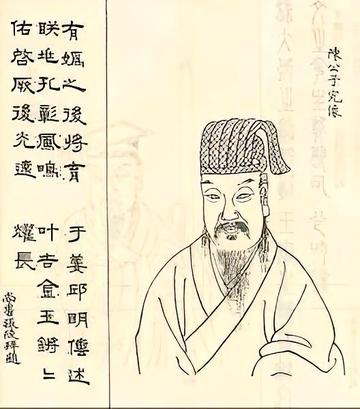 陳公子完像
有媯之後將育于姜邱明傳述
朕兆孔彰鳳鳴叶吉金玉鏘〻
佑啓厥後光遠耀長
尚書張浚拜題